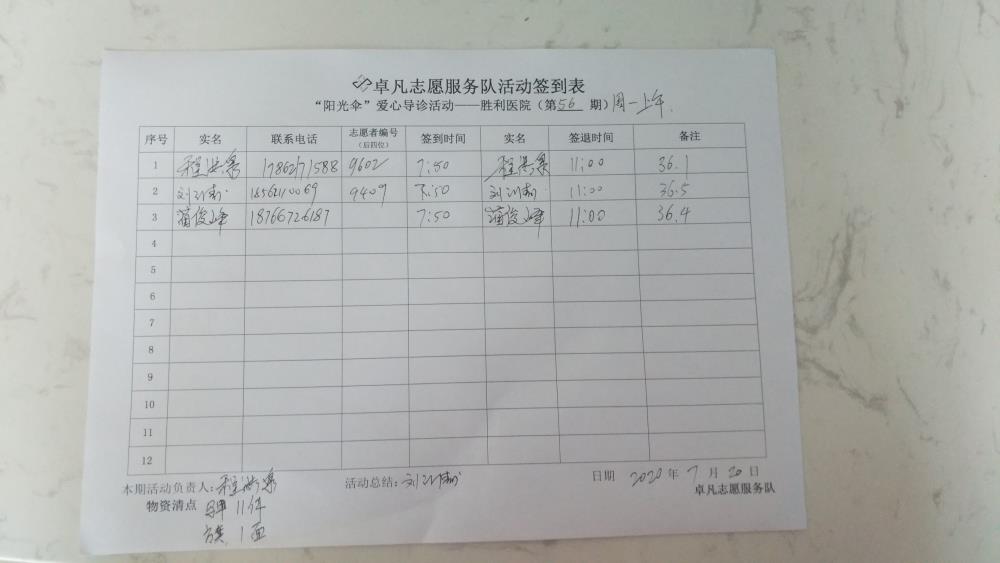 卓凡志愿服务队活动签到表
“阳光伞”爱心导诊活动——胜利医院（第56期）周一上午
序号 实名 联系电话 志愿者编号（后四位） 签到时间 实名 签退时间 备注
1 程洪 17862171588 9602 7:50 程洪 11:00 36.1
2 刘 18562110069 9409 7:50 刘 11:00 36.5
3 蒲俊峰 18766726187 7:50 蒲俊峰 11:00 36.4
4
5
6
7
8
9
10
11
12
本期活动负责人：程洪 活动总结：刘 日期 2020年7月20日
物资清点 11件 卓凡志愿服务队
1面